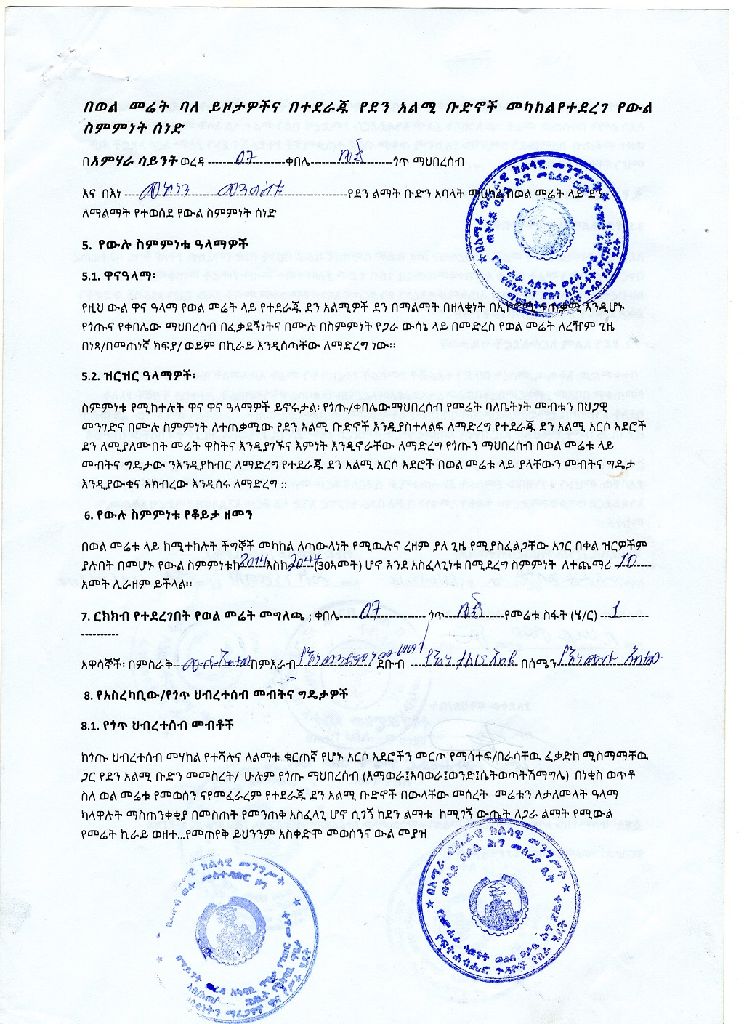 በወል መሬት ባለ ይዞታዎችና በተደራጁ የደን አልሚ ቡድኖች መካከልየተደረገ የውል
ስምምነት ሰነድ
በአምሃራ ሳይንት ወረዳ 07 ቀበሌ ጎጥ ማህበረሰብ
እና በእነ መንግስቱ የደን ልማት ቡድን አባላት መሬት ላይ
ለማልማት የተወሰደ የውል ስምምነት ሰነድ
5. የውሉ ስምምነቱ ዓላማዎች
5.1. ዋናዓላማ፡
የዚህ ውል ዋና ዓላማ የወል መሬት ላይ የተደራጁ ደን አልሚዎች ደን በማልማት በዘላቂነት እንዲሆኑ
የጎጡና የቀበሌው ማህበረሰብ በፈቃደኝነትና በሙሉ በስምምነት የጋራ ውሳኔ ላይ በመድረስ የወል መሬት ለረዥም ጊዜ
በነጻ/በመጠነኛ ክፍያ/ ወይም በኪራይ እንዲሰጣቸው ለማድረግ ነው።
5.2. ዝርዝር ዓላማዎች፡
ስምምነቱ የሚከተሉት ዋና ዋና ዓላማዎች ይኖሩታል፡ የጎጡ/ቀበሌውማህበረሰብ የመሬት ባለቤትነት መብቱን በህጋዊ
መንገድና በሙሉ ስምምነት ለተጠቃሚው የደን አልሚ ቡድኖች እንዲያስተላልፍ ለማድረግ የተደራጁ ደን አልሚ አርሶ አደሮች
ደን ለሚያለሙበት መሬት ዋስትና እንዲያገኙና እምነት እንዲኖራቸው ለማድረግ የጎጡን ማህበረሰብ በወል መሬቱ ላይ
መብትና ግዴታው ንእንዲያከብር ለማድረግ የተደራጁ ደን አልሚ አርሶ አደሮች በወል መሬቱ ላይ ያላቸውን መብትና ግዴታ
እንዲያውቁና አክብረው እንዲሰሩ ለማድረግ ።
6. የውሉ ስምምነቱ የቆይታ ዘመን
በወል መሬቱ ላይ ከሚተከሉት ችግኞች መካከል ለጣውላነት የሚዉሉና ረዘም ያለ ጊዜ የሚያስፈልጋቸው አገር በቀል ዝርዎችም
ያሉበት በመሆኑ የውል ስምምነቱከ2014እስከ2044(30አመት) ሆኖ እንደ አስፈላጊነቱ በሚደረግ ስምምነት ለተጨማሪ 10
አመት ሊራዘም ይችላል።
7. ርክክብ የተደረገበት የወል መሬት መግለጫ ; ቀበሌ 07 ጎጥ የመሬቱ ስፋት (ሄ/ር) 1
አዋሳኞች፡ በምስራቅ በምእራብ ደቡብ በሰሜን
8. የአስረካቢው/የጎጥ ህብረተሰብ መብትና ግዴታዎች
8.1. የጎጥ ህብረተሰብ መብቶች
ከጎጡ ህብረተሰብ መሃከል የተሻሉና ለልማቱ ቁርጠኛ የሆኑ አርሶ አደሮችን መርጦ የማሳተፍ/በራሳቸዉ ፈቃድከ ሚስማማቸዉ
ጋር የደን አልሚ ቡድን መመስረት/ ሁሉም የጎጡ ማህበረሰብ (እማወራ፤አባወራ፤ወንድ፤ሴትወጣትሽማግሌ) በነቂስ ወጥቶ
ስለ ወል መሬቱ የመወሰን ናየመፈራረም የተደራጁ ደን አልሚ ቡድኖች በዉላቸው መሰረት መሬቱን ለታለመላት ዓላማ
ካላዋሉት ማስጠንቀቂያ በመስጠት የመንጠቅ አስፈላጊ ሆኖ ሲገኝ ከደን ልማቱ ከሚገኝ ውጤት ለጋራ ልማት የሚውል
የመሬት ኪራይ ወዘተ...የመጠየቅ ይህንንም አስቀድሞ መወሰንና ውል መያዝ